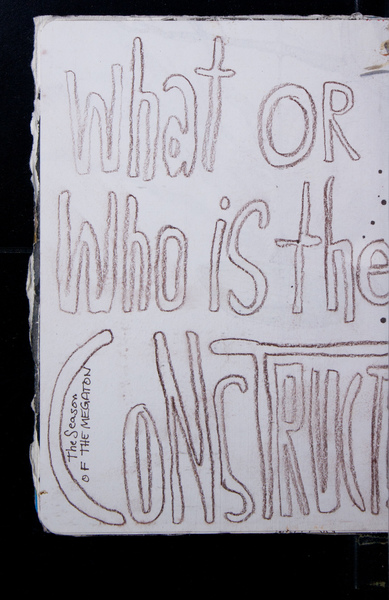 What OR
Who is the
CONSTRUCT
The Season
OF THE MEGATON